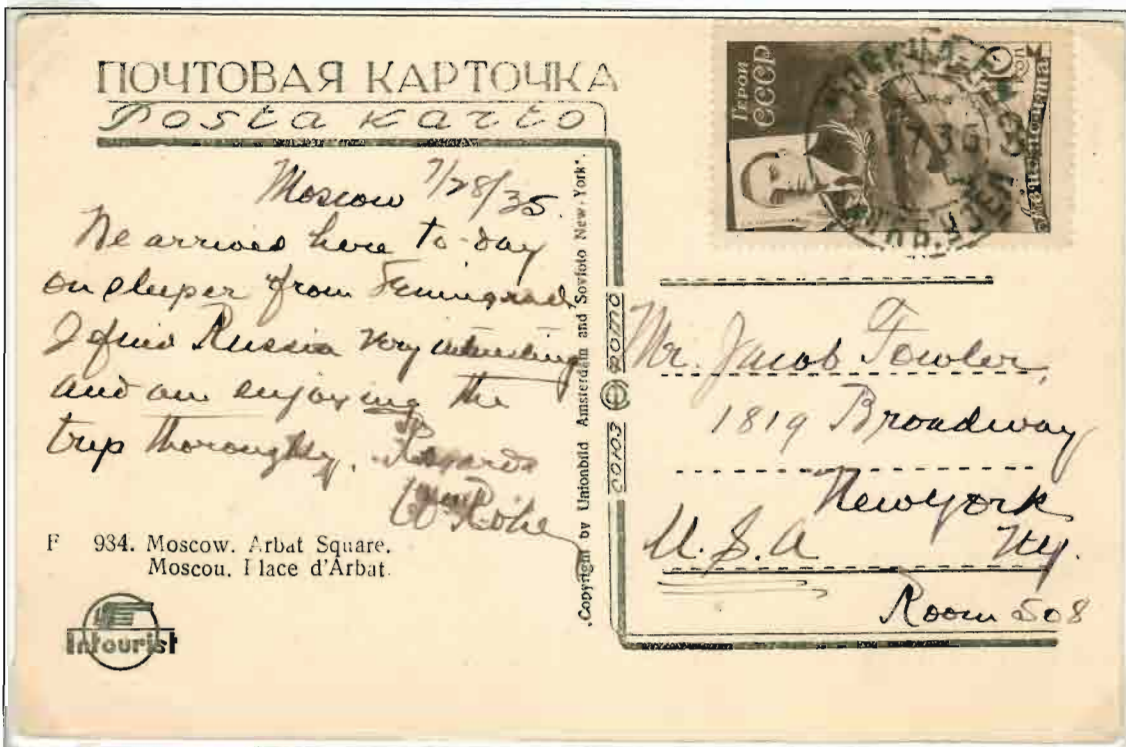 ПОЧТОВАЯ КАРТОЧКА
Posta karto
Moscow 7/28/35.
We arrived here to-day
on sleeper from Leningrad
I find Russia very interesting
and am enjoying the
trip thoroughly. Regards
F 934. Moscow. Arbat Square.
Moscou. Place d'Arbat.
Intourist
Copyright by Unionbild Amsterdam and Sovfoto New-York".
СОЮЗ ФОТО
ГЕРОИ
СССР
Mr. Jacob Fowler,
1819 Broadway
New York
U.S.A N.Y.
Room 508